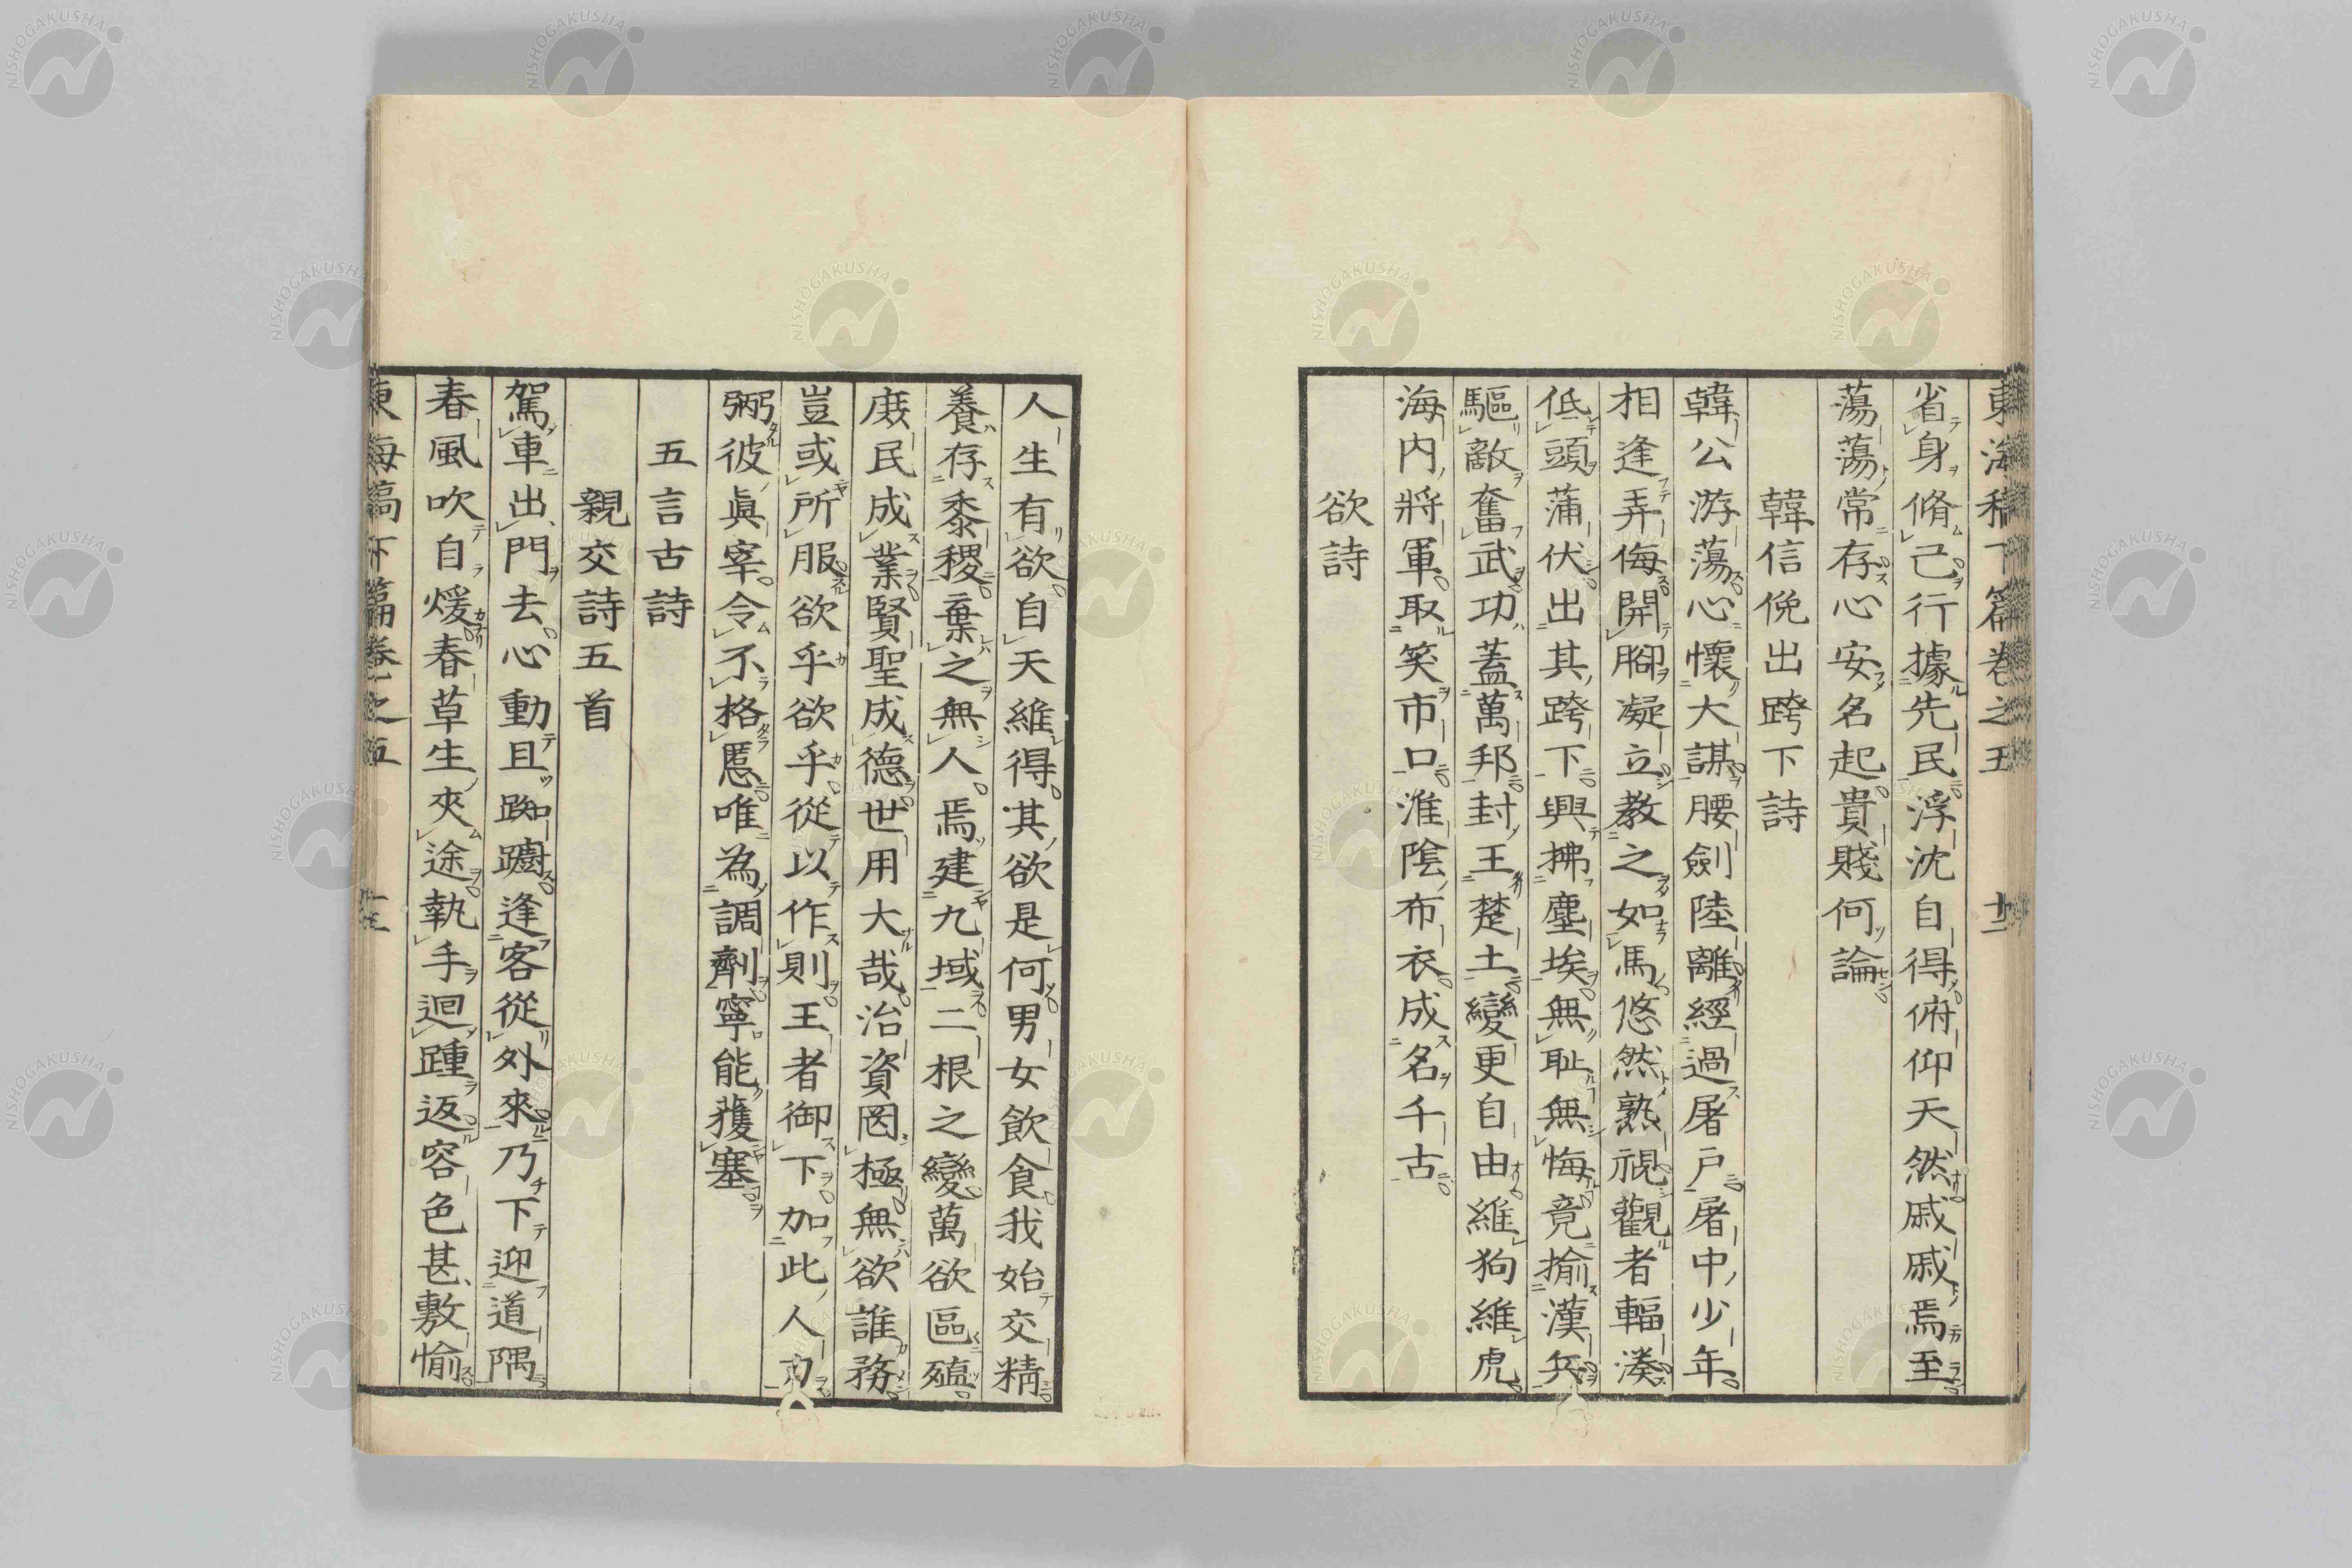 東海稿下篇卷之五 十二
省身脩己行據先民浮沈自得俯仰天然戚戚焉至
蕩蕩常存心安名起貴賤何論
韓信俛出跨下詩
韓公游蕩心懷大謀腰劍陸離經過屠戸屠中少年
相逢弄侮開腳凝立教之如馬悠然熟視觀者輻湊
低頭蒲伏出其跨下興拂塵埃無耻無悔竟揄漢兵
驅敵奮武功蓋萬邦封王楚土變更自由維狗維虎
海内將軍取笑市口淮陰布衣成名千古
欲詩
人生有欲自天維得其欲是何男女飲食我始交精
養存黍稷棄之無人焉建九域二根之變萬欲區殖
庶民成業賢聖成德世用大哉治資罔極無欲誰務
豈或所服欲乎欲乎從以作則王者御下加此人力
弼彼眞宰令不格慝唯為調劑寧能獲塞
五言古詩
親交詩五首
駕車出門去心動且踟躕逢客從外來乃下迎道隅
春風吹自煖春草生夾途執手迴踵返容色甚敷愉
東海稿下篇卷之五
NISHOGAKUSHA